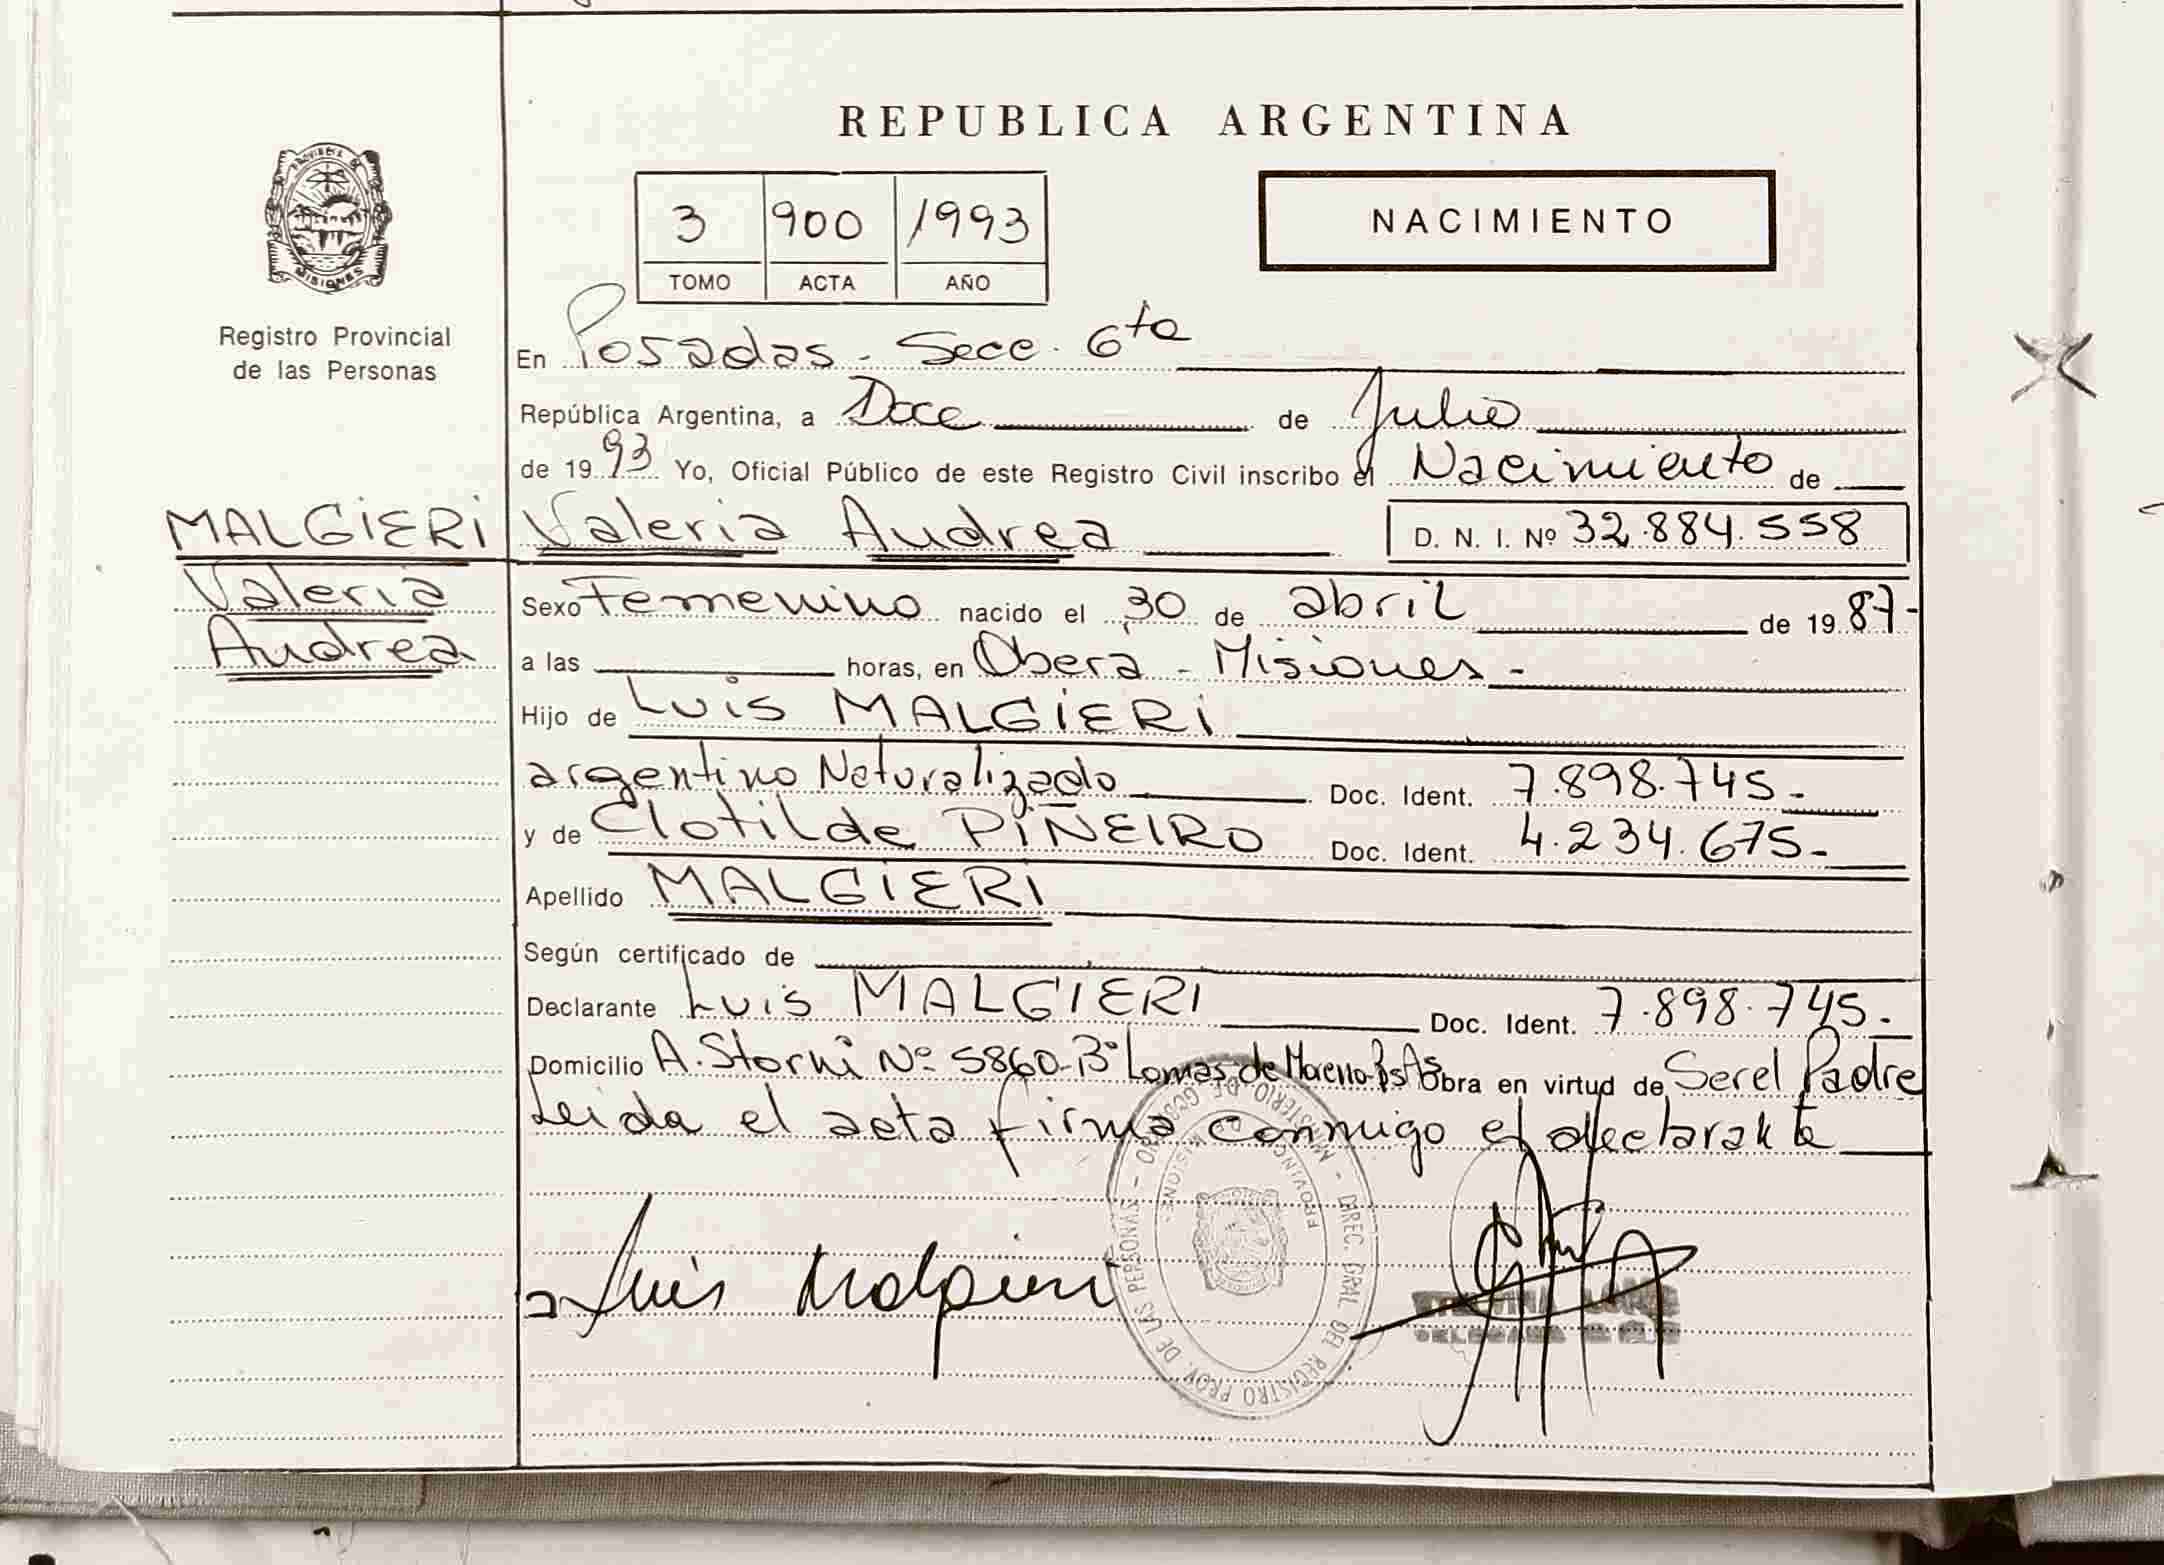 REPUBLICA ARGENTINA
3 900 1993
TOMO ACTA AÑO
NACIMIENTO
PROVINCIA DE
MISIONES
Registro Provincial
de las Personas
En Posadas - Secc. 6ta
República Argentina, a Doce de Julio
de 1993 Yo, Oficial Público de este Registro Civil inscribo el Nacimiento de
MALGIERI Valeria Andrea D. N. I. Nº 32.884.558
Valeria
Andrea
Sexo Femenino nacido el 30 de abril de 1987-
a las horas, en Oberá - Misiones -
Hijo de Luis MALGIERI
argentino Naturalizado Doc. Ident. 7.898.745-
y de Clotilde PIÑEIRO Doc. Ident. 4.234.675-
Apellido MALGIERI
Según certificado de
Declarante Luis MALGIERI Doc. Ident. 7.898.745-
Domicilio A. Storni Nº 5860-Bº Lomas de Moreno-Bs As Obra en virtud de Ser el Padre
Leida el acta firma conmigo el declarante
Luis Malgieri
MINISTERIO DE GOBIERNO - DIREC. GRAL DEL REGISTRO PROV. DE LAS PERSONAS -
PROVINCIA DE MISIONES